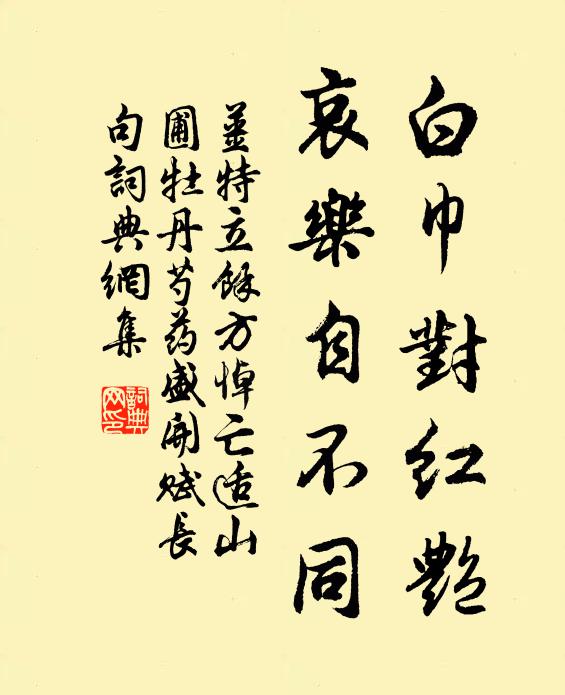 白巾對紅艷
哀樂自不同
姜特立餘方悼亡适山
圃牡丹芍药盛開赋長
句詞典網集
詞典
网印